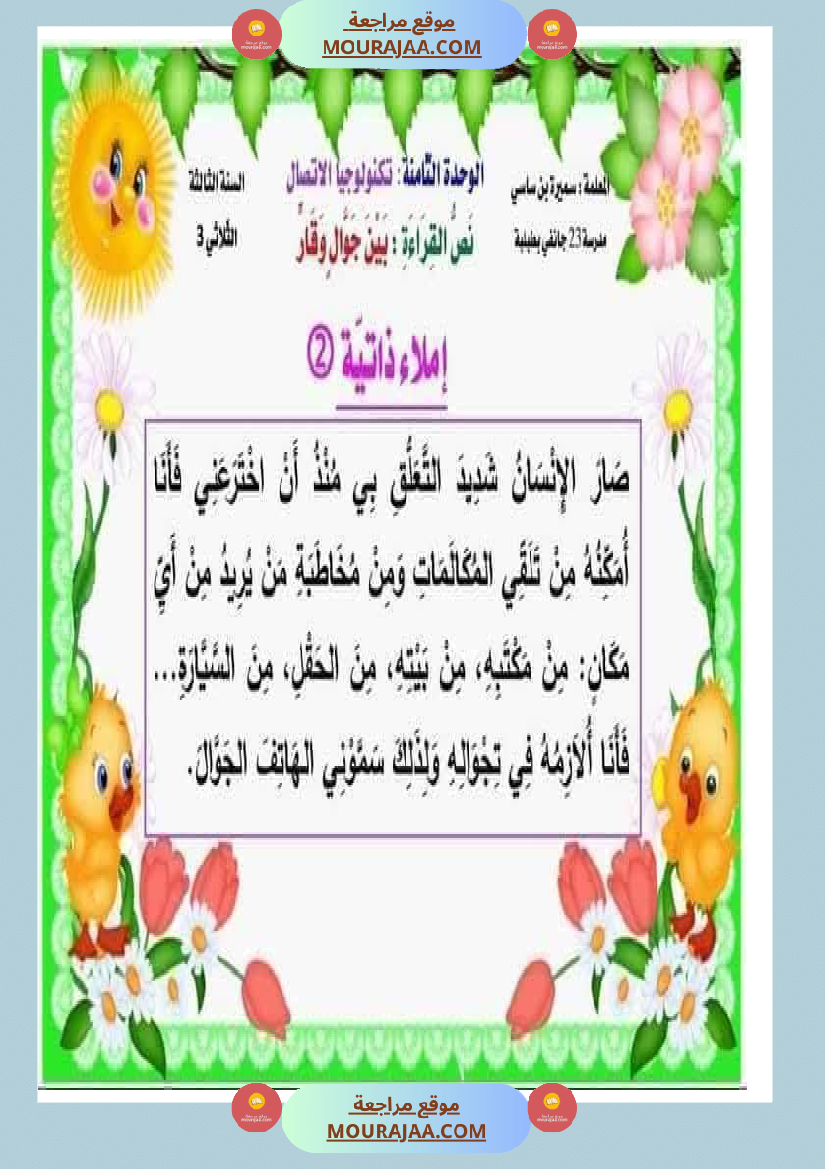 موقع مراجعة
MOURAJAA.COM
المعلمة : سميرة بن ساسي
الوحدة الثّامنة: تكنولوجيا الاتصال
السنة الثالثة
مدرسة 23 جانفي بطبلبة
نَصُّ القِرَاءَةِ : بَيْنَ جَوَّالٍ وَقَارٍّ
الثّلاثي 3
إملاء ذاتيّة ②
صَارَ الإِنْسَانُ شَدِيدَ التَّعَلُّقِ بِي مُنْذُ أَنْ اخْتَرَعَنِي فَأَنَا
أُمَكِّنُهُ مِنْ تَلَقِّي المُكَالَمَاتِ وَمِنْ مُخَاطَبَةِ مَنْ يُرِيدُ مِنْ أَيِّ
مَكَانٍ: مِنْ مَكْتَبِهِ، مِنْ بَيْتِهِ، مِنَ الحَقْلِ، مِنَ السَّيَّارَةِ...
فَأَنَا أُلاَزِمُهُ فِي تِجْوَالِهِ وَلِذَلِكَ سَمَّوْنِي الهَاتِفَ الجَوَّالَ.
موقع مراجعة
MOURAJAA.COM